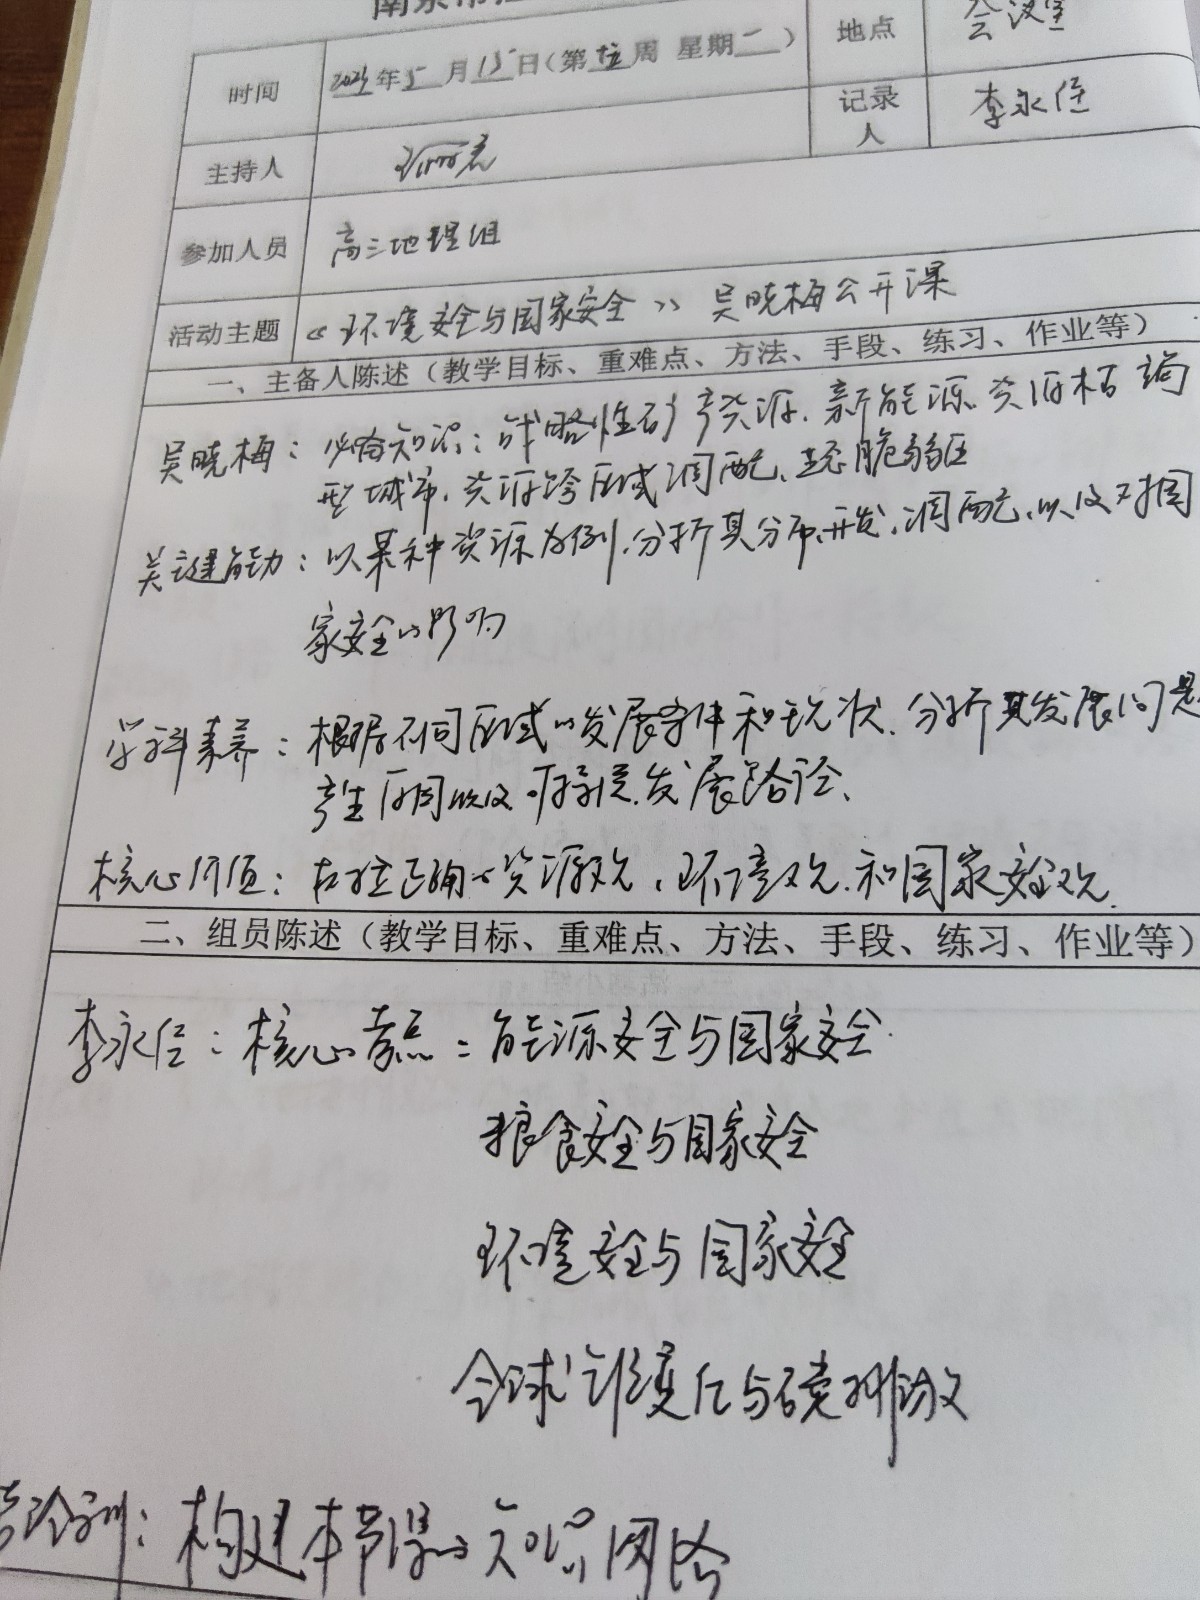 时间 年5月13日(第 周 星期二) 地点 会议室
主持人 记录人 李永信
参加人员 高三地理组
活动主题 《环境安全与国家安全》 吴晓梅公开课
一、主备人陈述（教学目标、重难点、方法、手段、练习、作业等）
吴晓梅：必备知识：战略性矿产资源、新能源、资源枯竭
型城市、资源跨区域调配、生态脆弱区
关键能力：以某种资源为例，分析其分布、开发、调配，以及对国
家安全的影响
学科素养：根据不同区域的发展条件和现状，分析其发展问题
产生原因以及可持续发展路径、
核心价值：树立正确的资源观、环境观、和国家安全观.
二、组员陈述（教学目标、重难点、方法、手段、练习、作业等）
李永信：核心考点：能源安全与国家安全
粮食安全与国家安全
环境安全与国家安全
全球气候变化与碳排放
构建本节课的知识网络